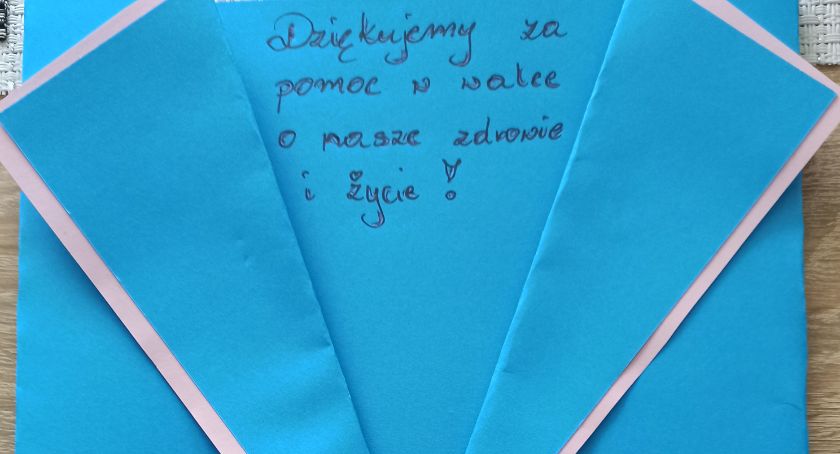 Dziękujemy za
pomoc w walce
o nasze zdrowie
i życie!